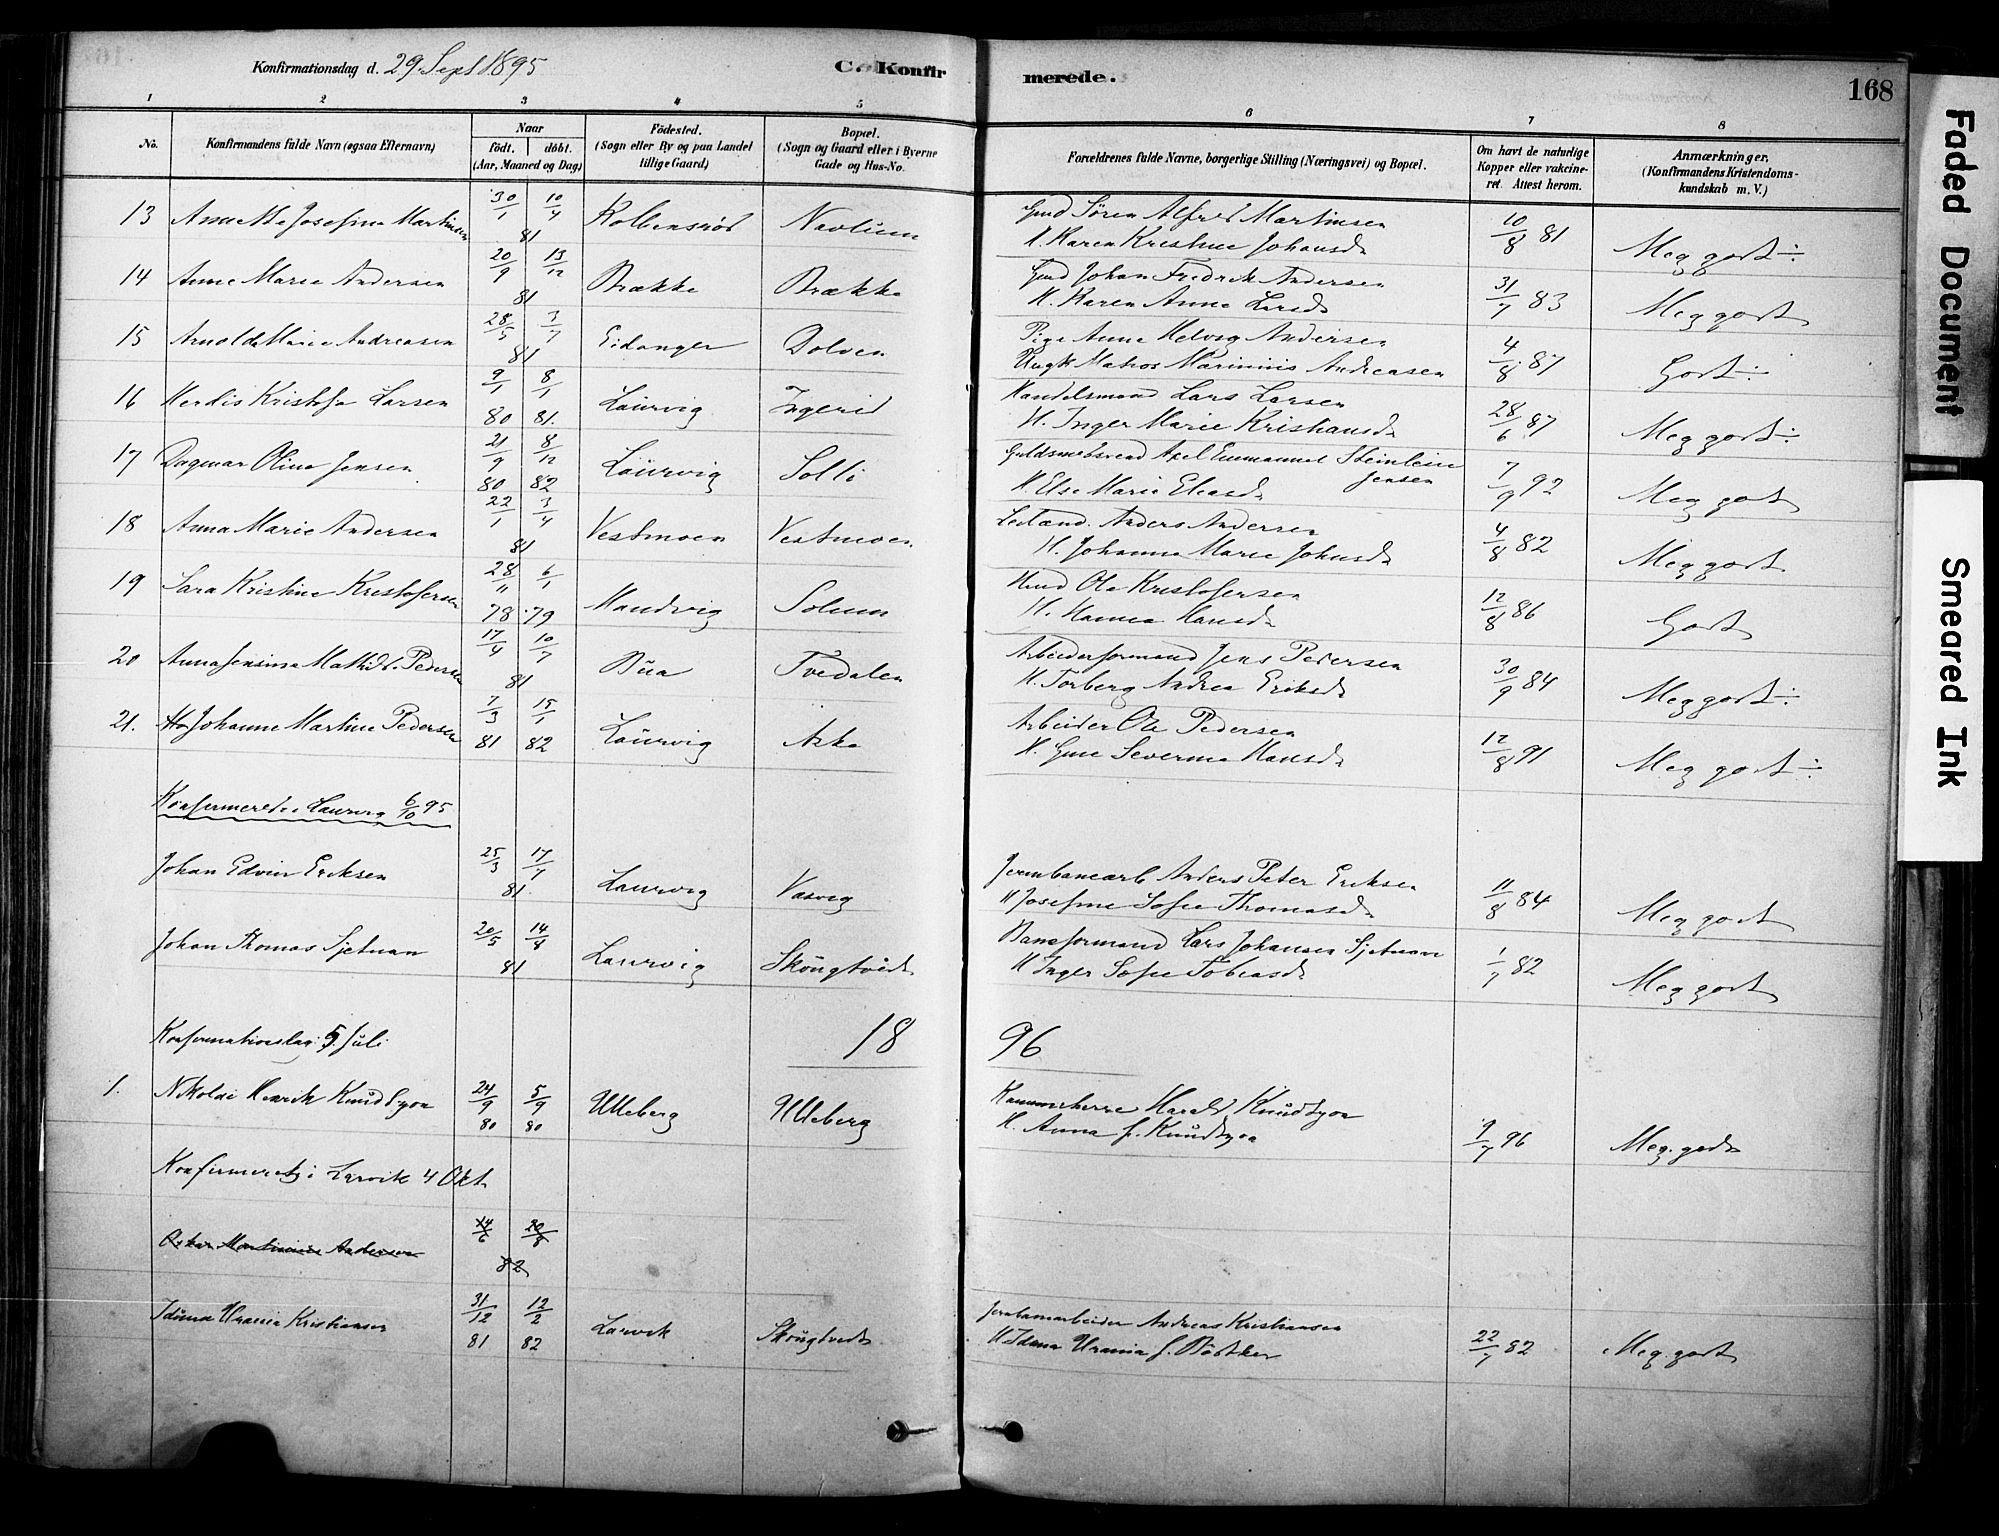 Konfirmationsdag d. 29. Sept 1895
C. Konfirmerede.
168
1 2 3 4 5 6 7 8
No.
Konfirmandens fulde Navn (ogsaa Efternavn)
Naar
født. døbt.
(Aar, Maaned og Dag)
Fødested.
(Sogn eller By og paa Landet
tillige Gaard)
Bopæl.
(Sogn og Gaard eller i Byerne
Gade og Hus-No.
Forældrenes fulde Navne, borgerlige Stilling (Næringsvei) og Bopæl.
Om havt de naturlige
Kopper eller vakcine-
ret. Attest herom.
Anmærkninger.
(Konfirmandens Kristendoms-
kundskab m. V.)
13 Annette Josefine Martinsen 30/1 10/4 81 Kolbensrød Navlum Gmd Søren Alfred Martinsen 10/8 81 Meg godt ÷
H. Karen Kristine Johansd.
14 Anne Marie Andersen 20/9 13/12 81 Brække Brække Gmd Johan Fredrik Andersen 31/7 83 Meg godt
H. Karen Anne Larsd.
15 Arnolda Marie Andreasen 28/5 3/7 81 Eidanger Dolven Pige Anne Helvig Andersen 4/8 87 Godt ÷
Ungk Matros Marinius Andreasen
16 Herdis Kristofa Larsen 9/1 80 8/1 81. Laurvig Ingerid Handelsmand Lars Larsen 28/6 87 Meg godt ÷
H. Inger Marie Kristiansd.
17 Dagmar Oline Jensen 21/9 80 8/12 82 Laurvig Solli Guldsmedsvend Axel Emmanuel Steinlein Jensen 7/9 92 Meg godt
H. Else Marie Eliasd.
18 Anna Marie Andersen 22/1 3/4 81 Vestmoen Vestmoen Leilænd. Anders Andersen 4/8 82 Meg godt
H. Johanne Marie Johnsd.
19 Sara Kristine Kristofersen 28/11 78 6/1 79 Mandvig Solum Hmd Ole Kristofersen 12/8 86 Godt
H. Hanna Hansd.
20 Anna Jensine Mathild. Pedersen 17/4 10/7 81 Bua Tvedalen Arbeiderformand Jens Pedersen 30/9 84 Meg godt ÷
H. Torberg Andrea Eriksd.
21. Johanne Martine Pedersen 7/3 81 15/1 82 Laurvig Aske Arbeider Ole Pedersen 12/8 91 Meg godt ÷
H. Gine Severine Hansd.
Konfirmerede i Laurvig 6/10 95
Johan Edvin Eriksen 25/3 17/7 81. Laurvig Vasvig Jernbanearb Anders Peter Eriksen 11/8 84 Meg godt
H Josefine Sofie Thomasd.
Johan Thomas Sjetnan 20/5 14/8 81 Laurvig Skougtvedt Baneformand Lars Johansen Sjetnan 1/7 82 Meg godt
H Inger Sofie Tobiasd.
Konfirmationsdag: 5. Juli 18 96
1. Nikolai Henrik Knudtzon 24/9 80 5/9 80 Ulleberg Ulleberg Kammerherre Harald Knudtzon 9/7 96 Meg. godt
H. Anna f. Knudtzon
Konfirmeret i Larvik 4 Okt
Oskar Martinius Andersen 14/6 20/8 82
Iduna Urania Kristiansen 31/12 81 12/2 82 Larvik Skougtvedt Jernbanearbeider Andreas Kristiansen 22/7 82 Meg. godt
H Iduna Urania f. Bødtker
Faded Document
Smeared Ink